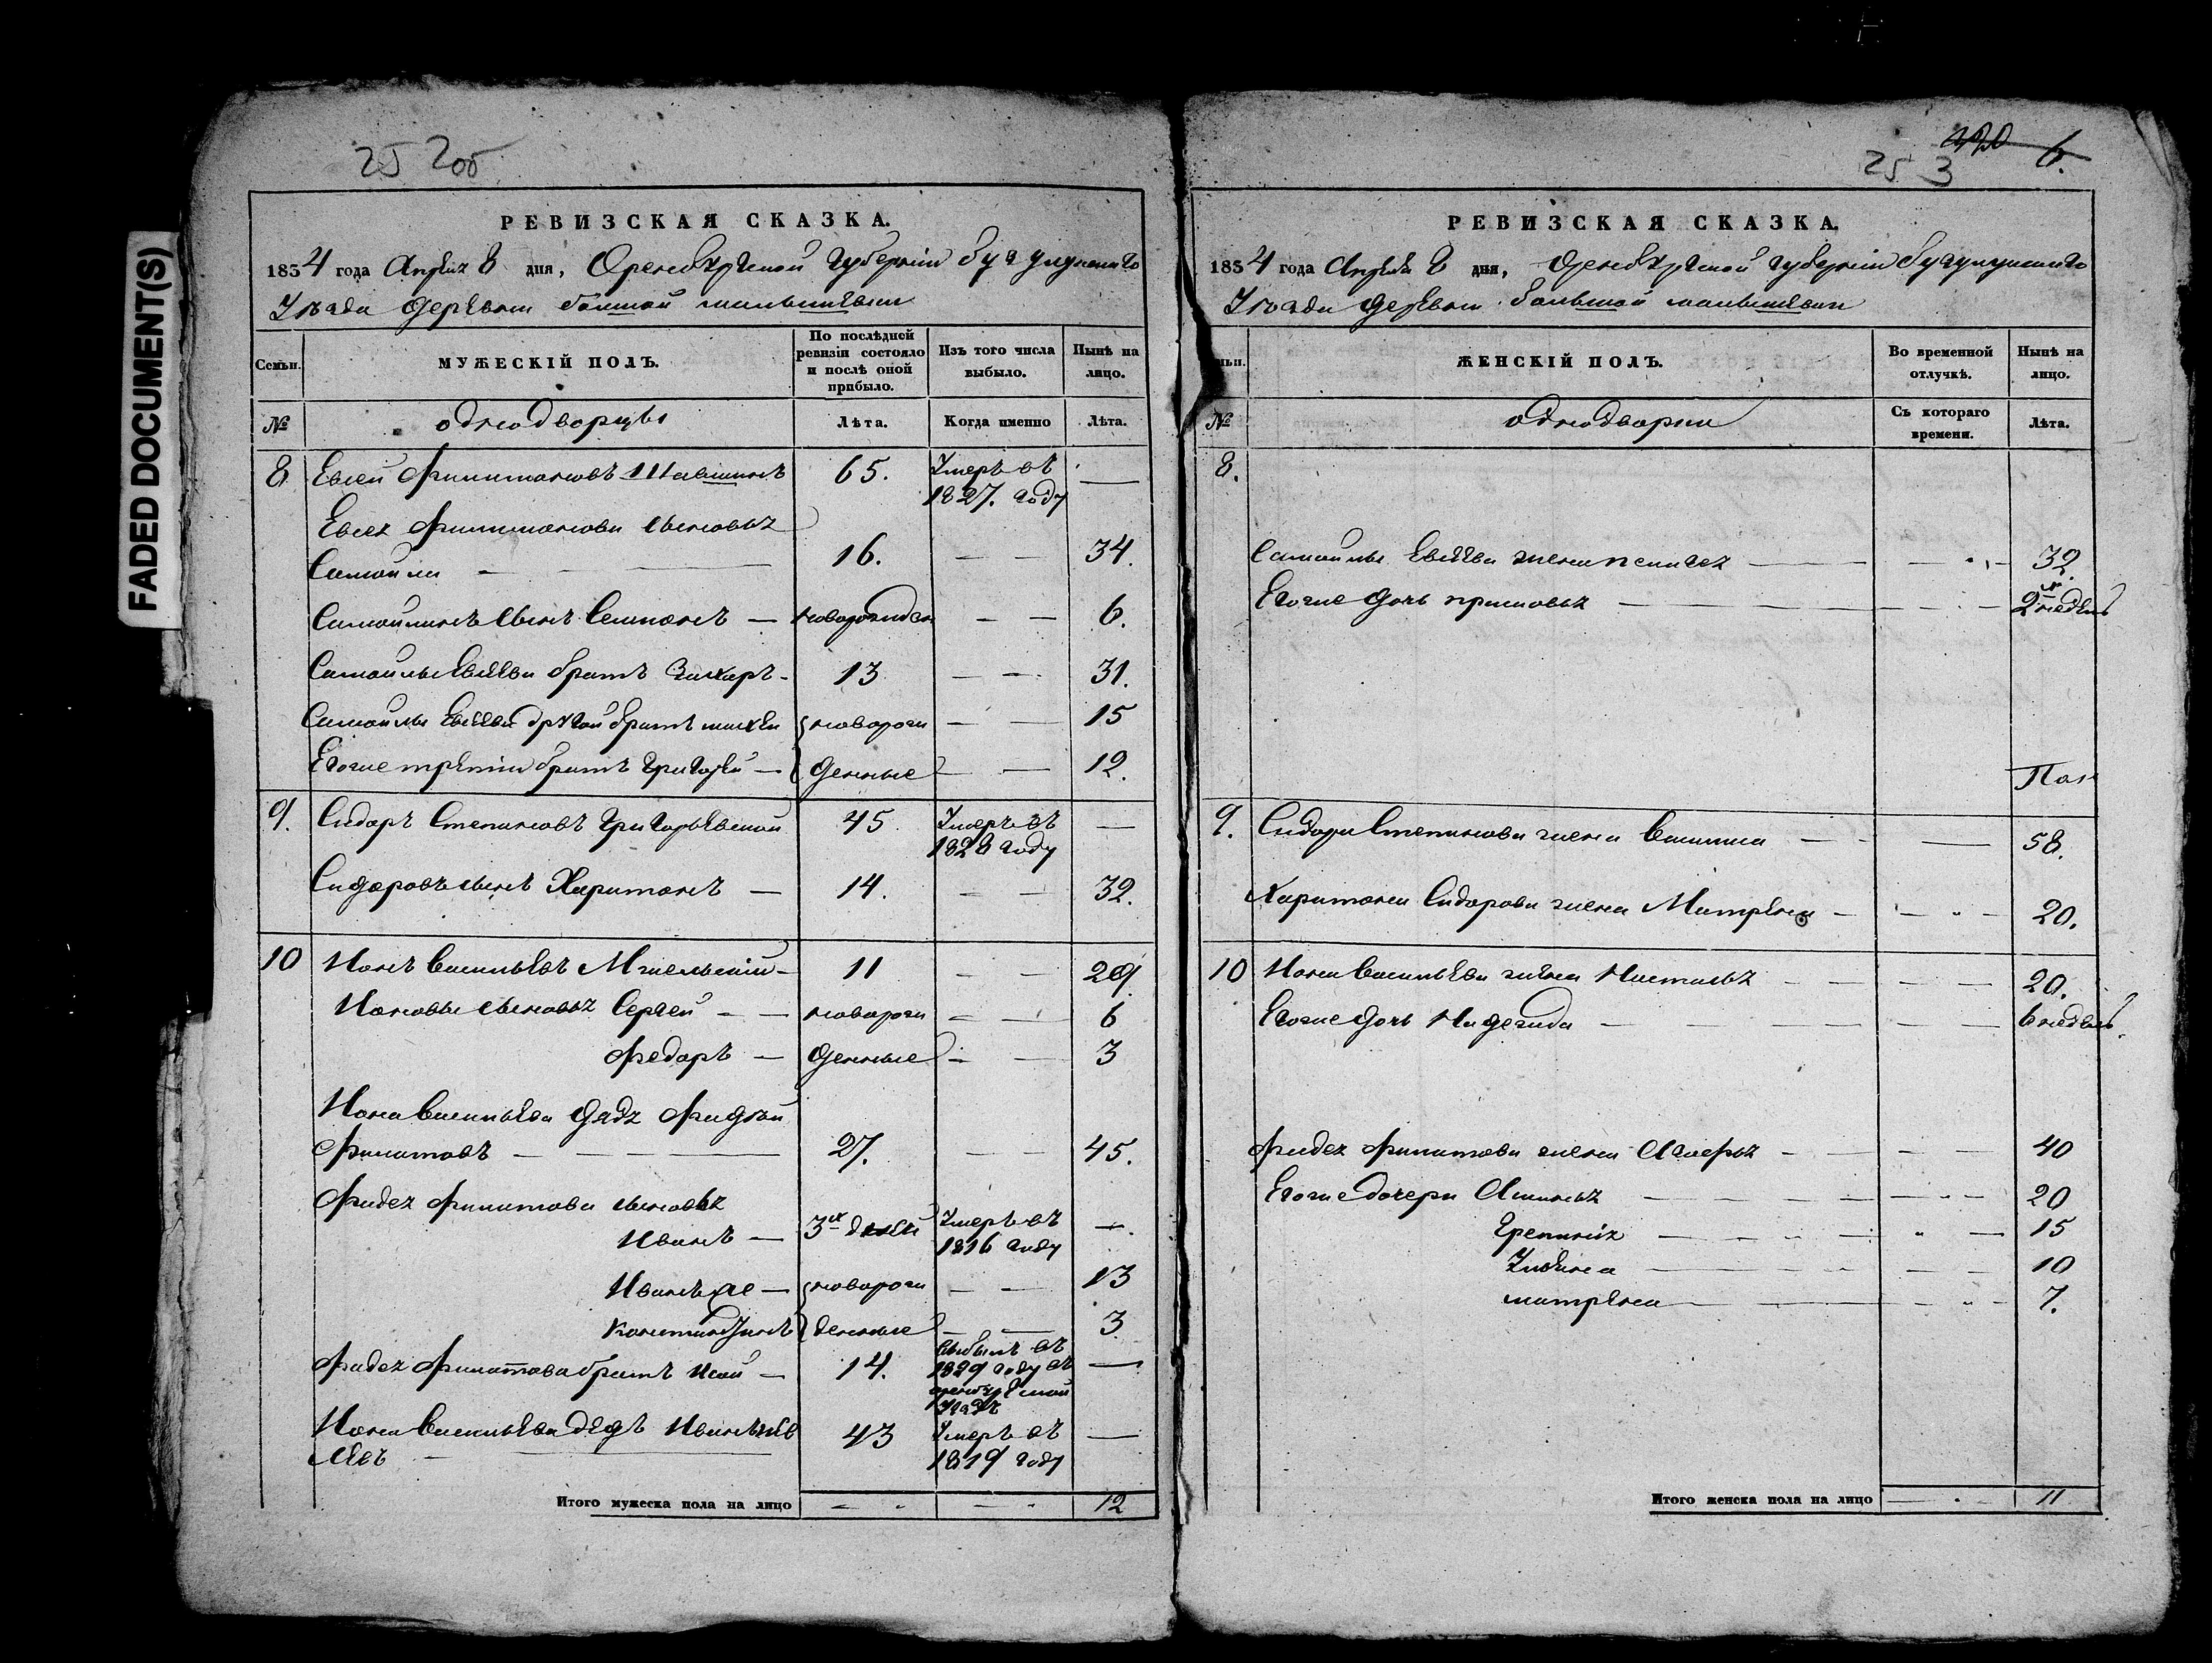 FADED DOCUMENT(S)
25 2об
РЕВИЗСКАЯ СКАЗКА.
1834 года Апреля 8 дня, Оренбургской губернии бугурусланского
Уѣзда деревни большой малышевки
Семьи.
МУЖЕСКІЙ ПОЛЪ.
По послѣдней ревизіи состояло и послѣ оной прибыло.
Изъ того числа выбыло.
Нынѣ на лицо.
№
однодворцы
Лѣта.
Когда именно
Лѣта.
8 Евсей Филимоновъ 65. Умеръ въ 1827. году —
Евсея Филимонова сыновья
Самойла — 16. — — 34.
Самойлинъ сынъ Семионъ — новорожден — — 6.
Самойлы Евсеева братъ Захаръ - 13 — — 31.
Самойлы Евсеева другой братъ михей новорож — — 15
Егоже третий братъ Григорей — денные — — 12.
9. Сидоръ Степановъ Григорьевской 45. Умеръ въ 1828 году —
Сидоровъ сынъ Харитонъ — 14. — — 32.
10 Ионъ Васильевъ - 11 — — 29.
Ионовы сыновья Сергей — новорож — — 6
Федоръ — денные — — 3
Иона Васильева дядя Фадѣй
Филатовъ — 27. — — 45.
Фадея Филатова сыновья
Иванъ — 3х дней Умеръ въ 1816 году —
Иванъ же — новорож — — 13
Констинтинъ денные — — 3
Фадея Филатова братъ Исай — 14. выбылъ въ 1829 году въ —
Иона Васильева дедъ Иванъ 43 Умеръ въ 1819 году —
Итого мужеска пола на лицо — — 12
25 3
6.
РЕВИЗСКАЯ СКАЗКА.
1834 года Апреля 8 дня, Оренбургской губернии бугурусланского
Уѣзда деревни большой малышевки
ЖЕНСКІЙ ПОЛЪ.
Во временной отлучкѣ.
Нынѣ на лицо.
№
однодворки
Съ котораго времени.
Лѣта.
8.
Самойлы Евсеева жена — 32.
Егоже дочь — 2 недель
9. Сидора Степанова жена Василиса — 58.
Харитона Сидорова жена Матрена — 20.
10 Иона Васильева жена Настасья — 20.
Егоже дочь Надежда — 6 недель
Фадея Филатова жена — 40
Егоже дочери Аксинья — 20
15
Устинья — 10
матрена — 7.
Итого женска пола на лицо — 11